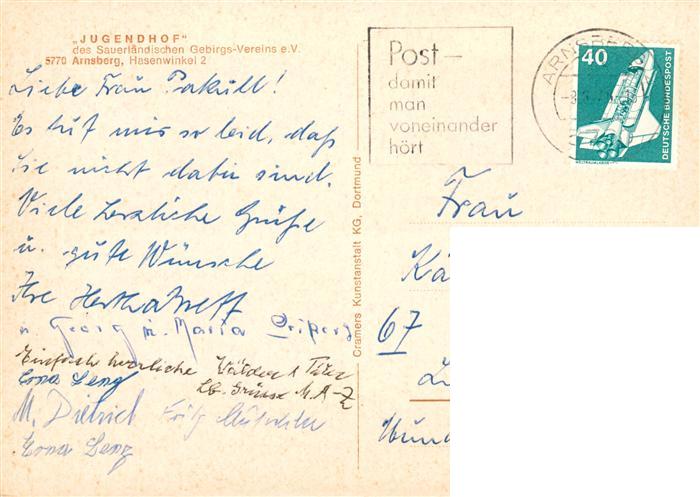 „JUGENDHOF"
des Sauerländischen Gebirgs-Vereins e.V.
5770 Arnsberg, Hasenwinkel 2
Liebe Frau Pakull!
Es tut mir so leid, daß
Sie nicht dabei sind.
Viele herzliche Grüße
u. gute Wünsche
Ihre Hertha
u. Georg u. Maria
Einfach herrliche Wälder
Erna Lenz Lb. Grüsse M. A-Z
M. Dietrich Fritz
Erna Lenz
Cramers Kunstanstalt KG, Dortmund
Post –
damit
man
voneinander
hört
ARNSBERG
40
DEUTSCHE BUNDESPOST
WELTRAUMLABOR
Frau
Kä
67